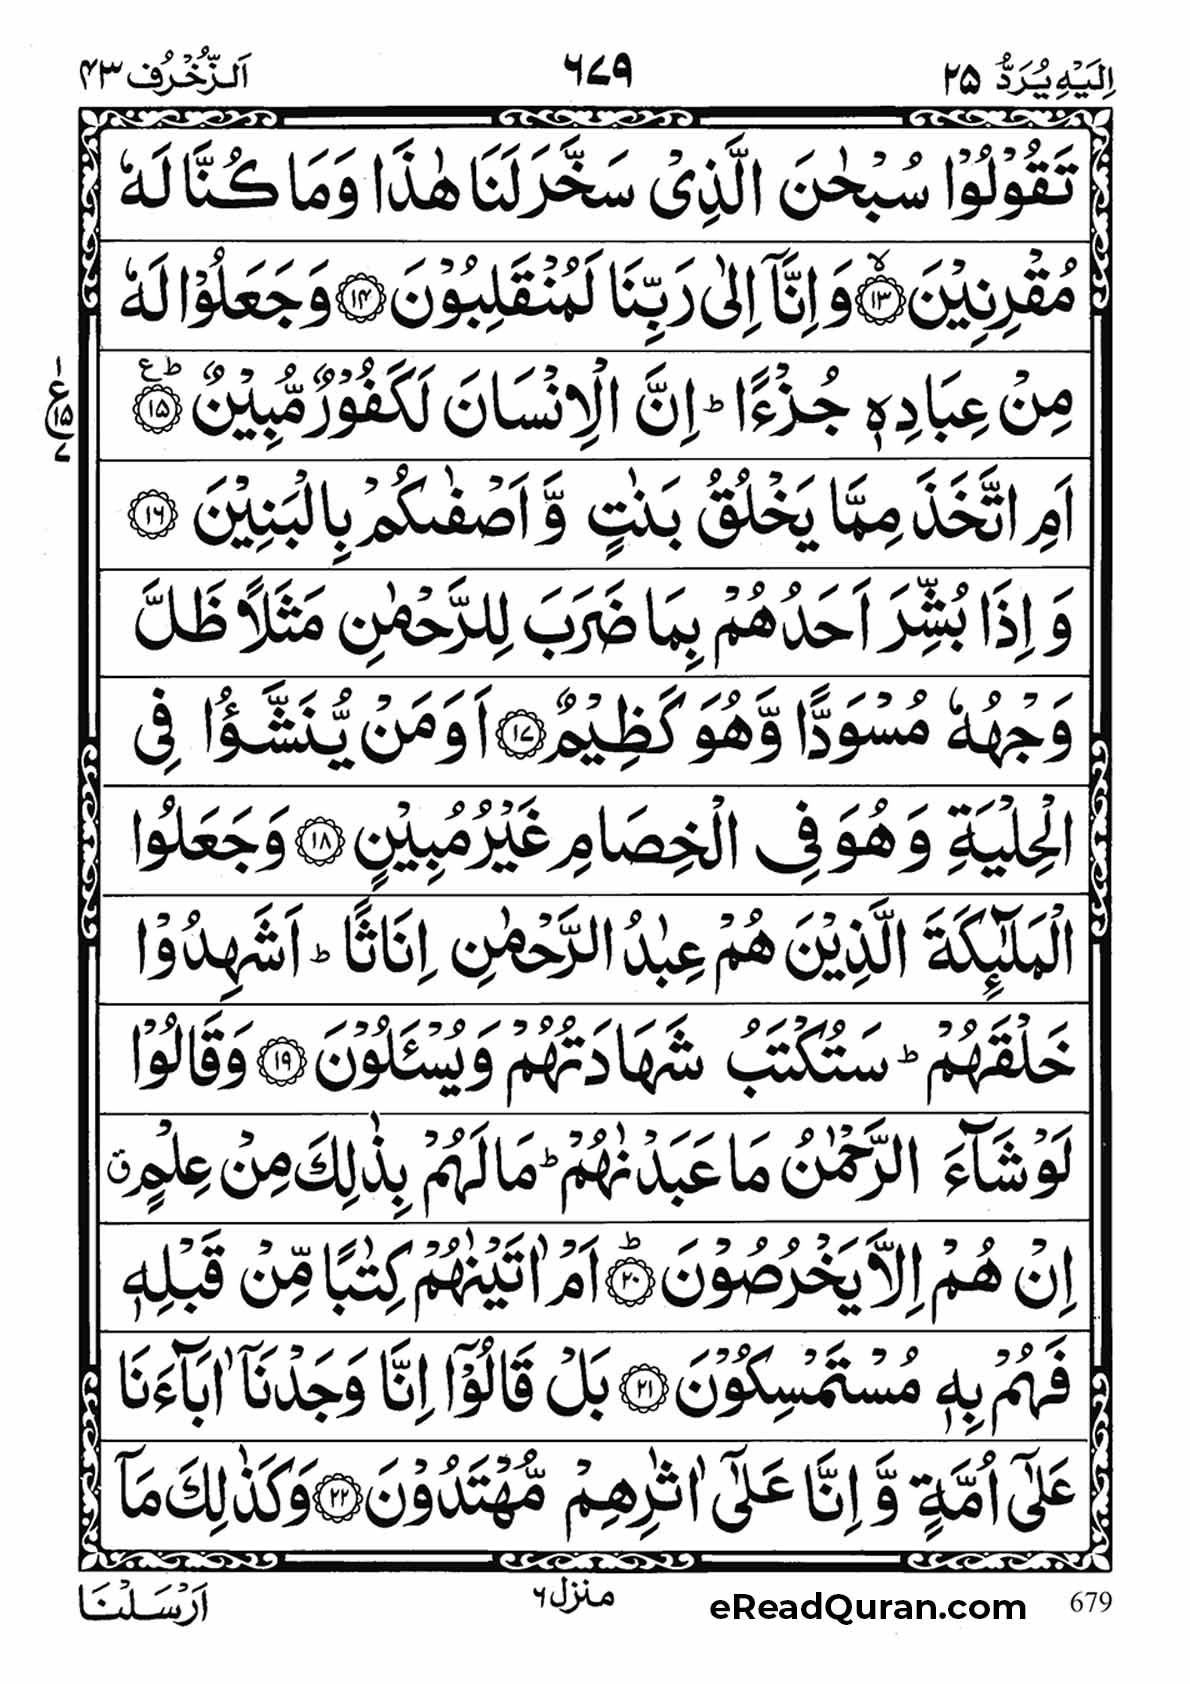 اِلَيْهِ يُرَدُّ ۲۵
۶۷۹
اَلزُّخْرُف ۴۳
تَقُوْلُوْا سُبْحٰنَ الَّذِیْ سَخَّرَ لَنَا هٰذَا وَمَا كُنَّا لَهٗ
مُقْرِنِيْنَ ۙ‏﴿۱۳﴾ وَاِنَّاۤ اِلٰی رَبِّنَا لَمُنْقَلِبُوْنَ ﴿۱۴﴾ وَجَعَلُوْا لَهٗ
مِنْ عِبَادِهٖ جُزْءًا ؕ اِنَّ الْاِنْسَانَ لَكَفُوْرٌ مُّبِيْنٌ ؕع ﴿۱۵﴾
۱
ع
۱۵
۷
اَمِ اتَّخَذَ مِمَّا يَخْلُقُ بَنٰتٍ وَّاَصْفٰىكُمْ بِالْبَنِيْنَ ﴿۱۶﴾
وَاِذَا بُشِّرَ اَحَدُهُمْ بِمَا ضَرَبَ لِلرَّحْمٰنِ مَثَلًا ظَلَّ
وَجْهُهٗ مُسْوَدًّا وَّهُوَ كَظِيْمٌ ﴿۱۷﴾ اَوَمَنْ يُّنَشَّؤُا فِی
الْحِلْيَةِ وَهُوَ فِی الْخِصَامِ غَيْرُ مُبِيْنٍ ﴿۱۸﴾ وَجَعَلُوا
الْمَلٰٓئِكَةَ الَّذِيْنَ هُمْ عِبٰدُ الرَّحْمٰنِ اِنَاثًا ؕ اَشَهِدُوْا
خَلْقَهُمْ ؕ سَتُكْتَبُ شَهَادَتُهُمْ وَيُسْـَٔلُوْنَ ﴿۱۹﴾ وَقَالُوْا
لَوْ شَآءَ الرَّحْمٰنُ مَا عَبَدْنٰهُمْ ؕ مَا لَهُمْ بِذٰلِكَ مِنْ عِلْمٍ ق
اِنْ هُمْ اِلَّا يَخْرُصُوْنَ ؕ ﴿۲۰﴾ اَمْ اٰتَيْنٰهُمْ كِتٰبًا مِّنْ قَبْلِهٖ
فَهُمْ بِهٖ مُسْتَمْسِكُوْنَ ﴿۲۱﴾ بَلْ قَالُوْۤا اِنَّا وَجَدْنَاۤ اٰبَآءَنَا
عَلٰۤی اُمَّةٍ وَّاِنَّا عَلٰۤی اٰثٰرِهِمْ مُّهْتَدُوْنَ ﴿۲۲﴾ وَكَذٰلِكَ مَاۤ
679
eReadQuran.com
منزل ۶
اَرْسَلْنَا